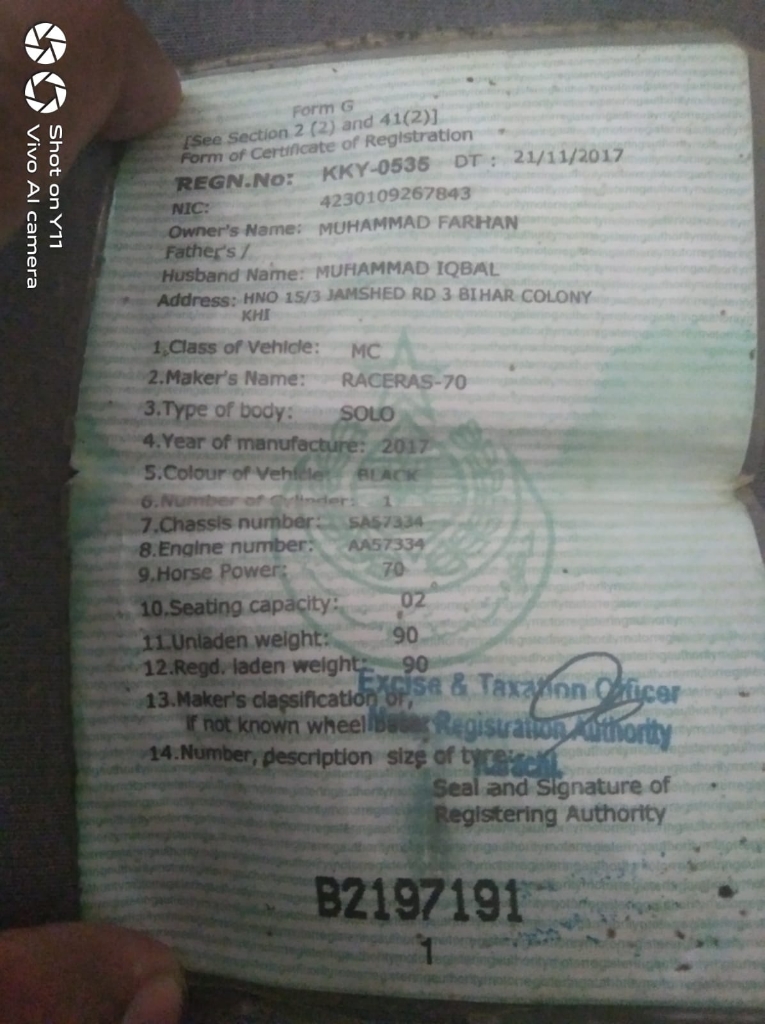 Form G
[See Section 2 (2) and 41(2)]
Form of Certificate of Registration
REGN.No: KKY-0535 DT : 21/11/2017
NIC: 4230109267843
Owner's Name: MUHAMMAD FARHAN
Father's /
Husband Name: MUHAMMAD IQBAL
Address: HNO 15/3 JAMSHED RD 3 BIHAR COLONY
KHI
1.Class of Vehicle: MC
2.Maker's Name: RACERAS-70
3.Type of body: SOLO
4.Year of manufacture: 2017
5.Colour of Vehicle: BLACK
6.Number of Cylinder: 1
7.Chassis number: SA57334
8.Engine number: AA57334
9.Horse Power: 70
10.Seating capacity: 02
11.Unladen weight: 90
12.Regd. laden weight: 90
13.Maker's classification or,
if not known wheel base:
14.Number, description size of tyre:
Excise & Taxation Officer
Motor Registration Authority
Karachi.
Seal and Signature of
Registering Authority
B2197191
1
Shot on Y11
Vivo AI camera